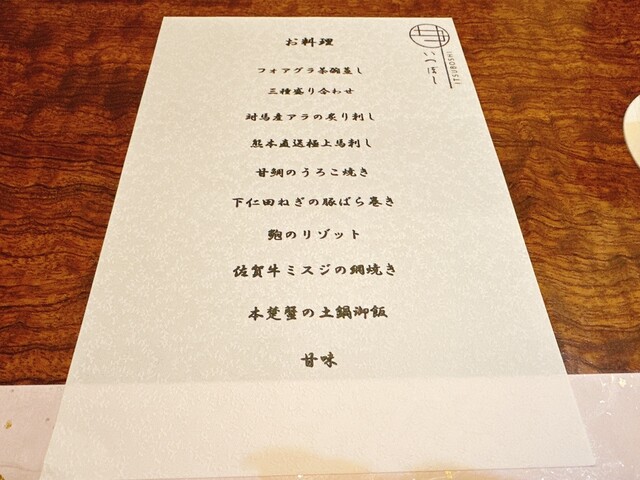 お料理
フォアグラ茶碗蒸し
三種盛り合わせ
対馬産アラの炙り刺し
熊本直送極上馬刺し
甘鯛のうろこ焼き
下仁田ねぎの豚ばら巻き
鮑のリゾット
佐賀牛ミスジの網焼き
本楚蟹の土鍋御飯
甘味
いつぼし
ITSUBOSHI